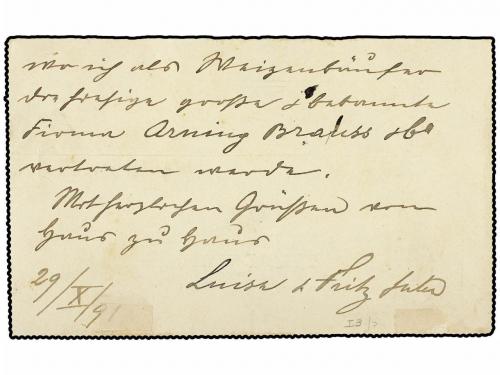 wo ich als Weizenkäufer
die hiesige große & bekannte
Firma Arning Brauss & Co
vertreten werde.
Mit herzlichen Grüßen von
Haus zu Haus
Luise & Fritz
29/X/91